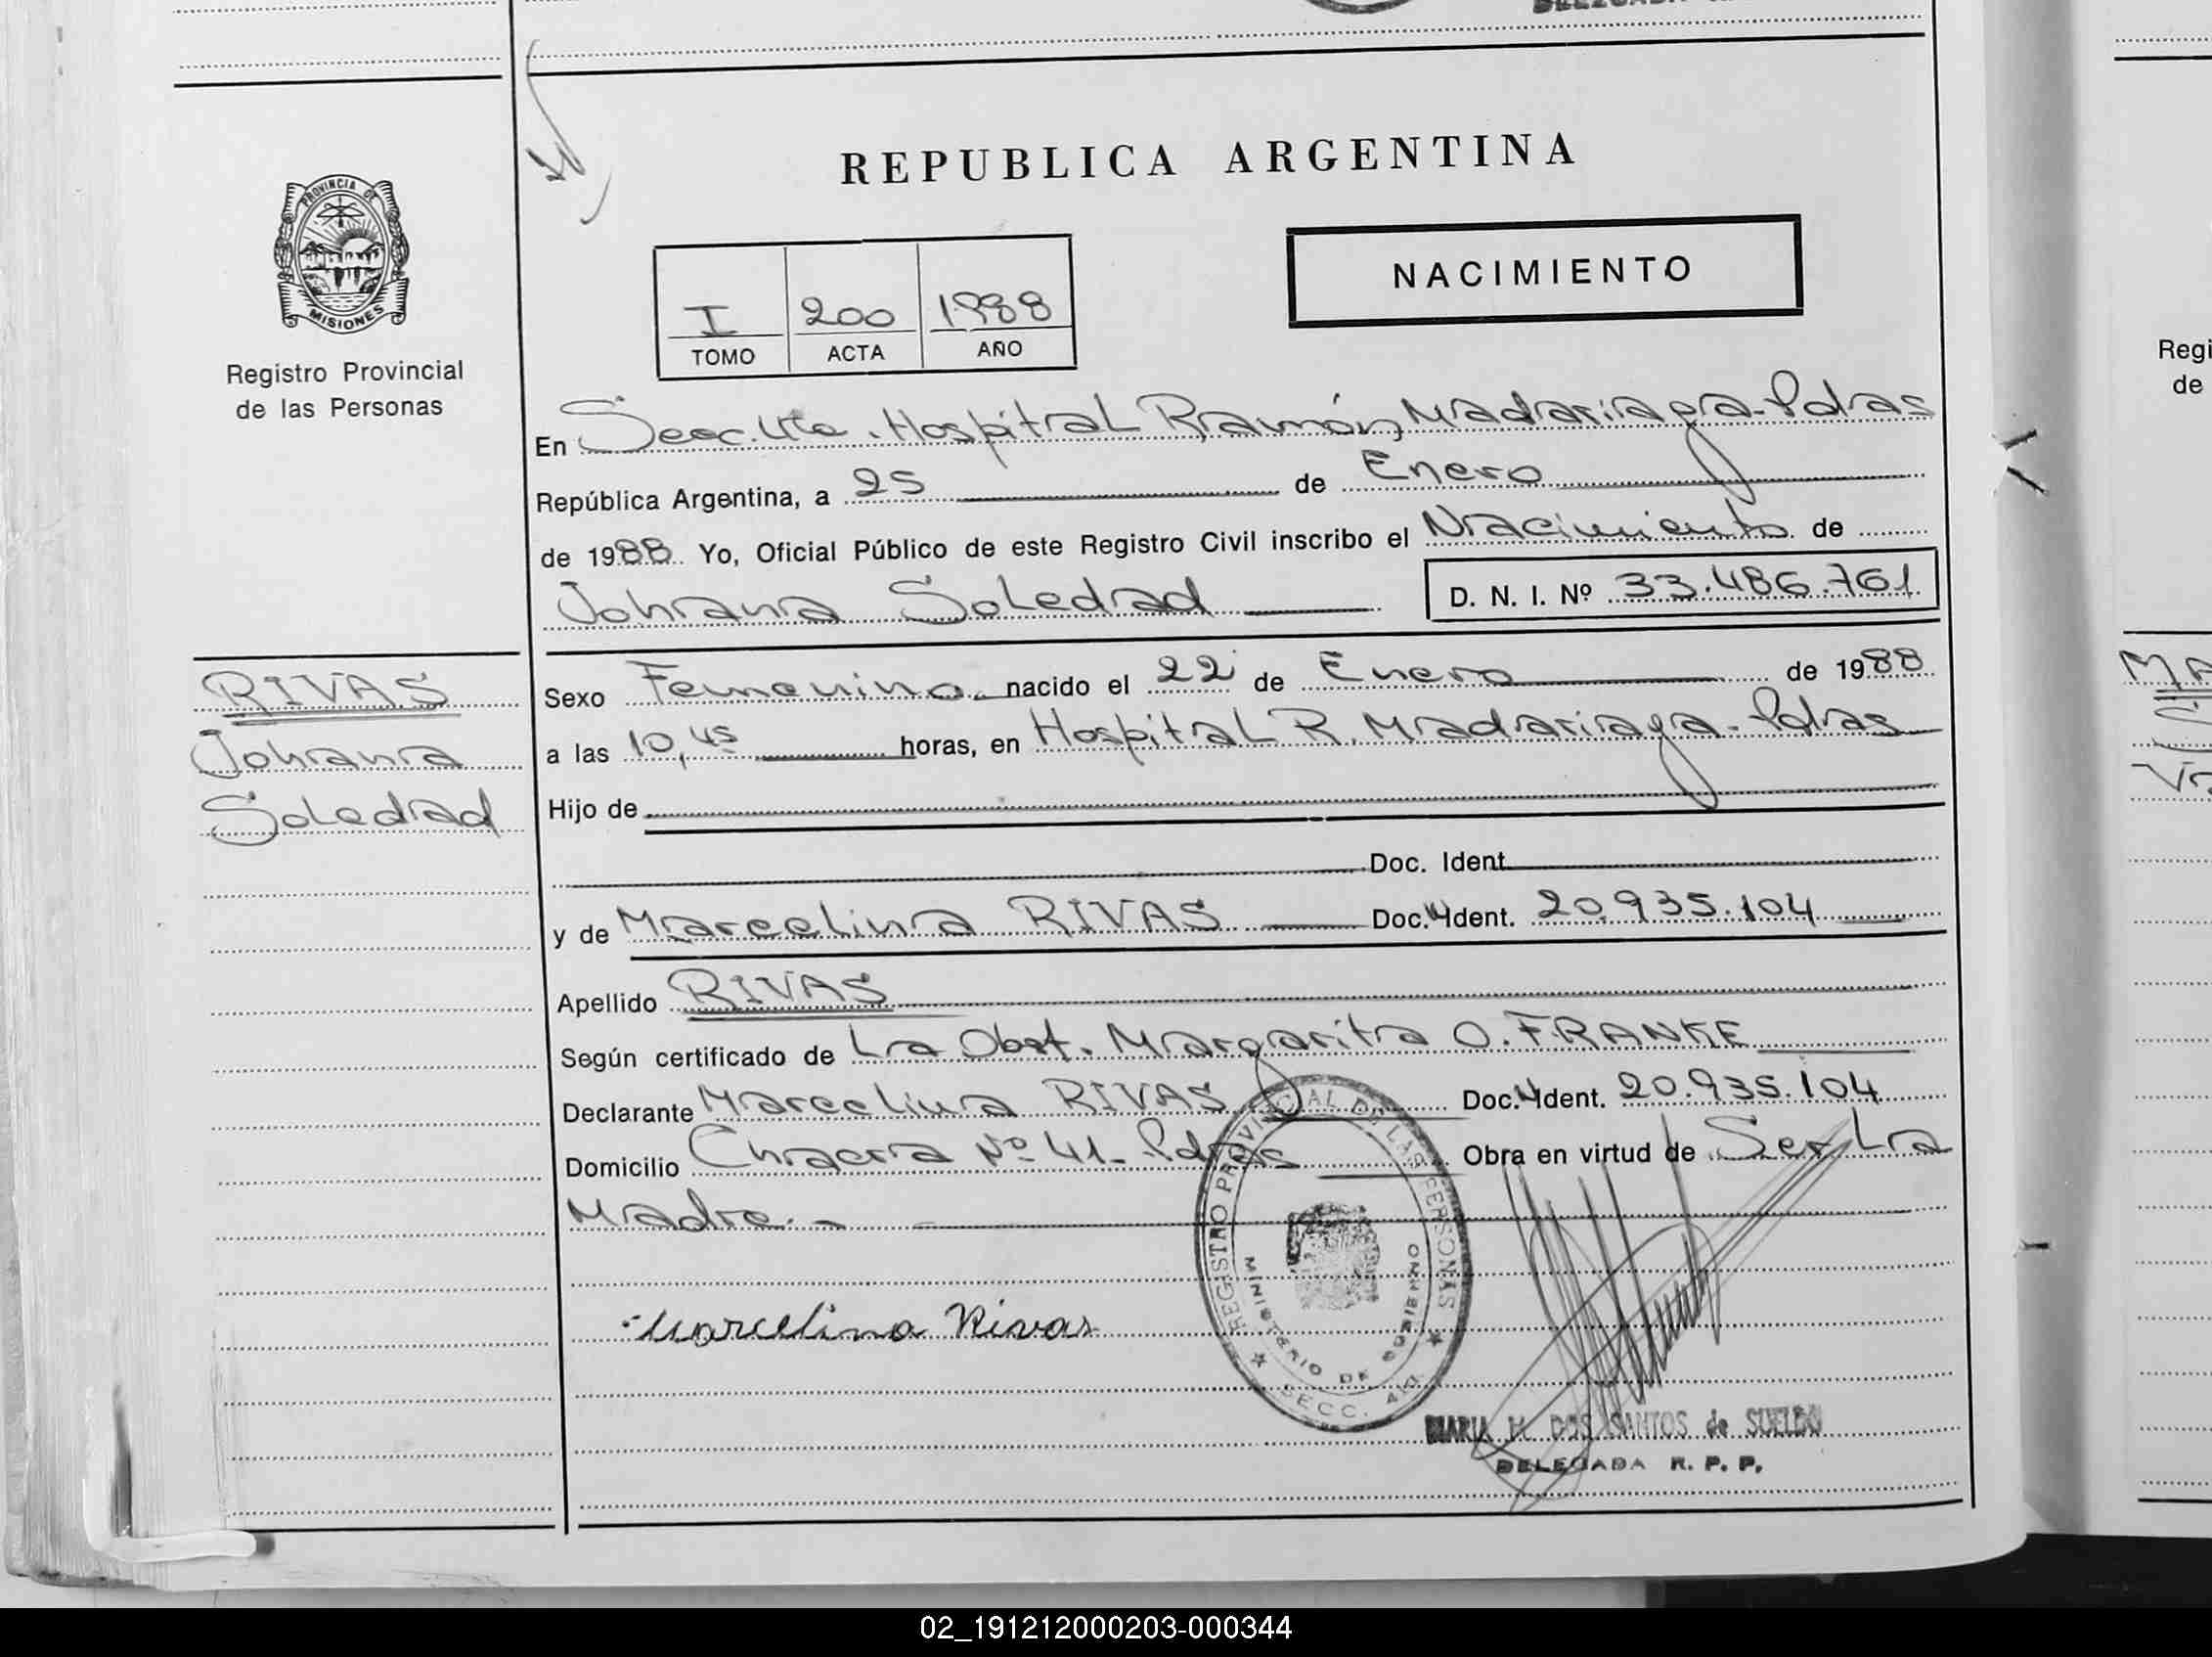 REPUBLICA ARGENTINA
PROVINCIA DE
MISIONES
Registro Provincial
de las Personas
NACIMIENTO
I 200 1988
TOMO ACTA AÑO
En Secc. 4ta. Hospital Ramón Madariaga - Pdas
República Argentina, a 25 de Enero
de 1988 Yo, Oficial Público de este Registro Civil inscribo el Nacimiento de
Johana Soledad D. N. I. Nº 33.486.761
RIVAS
Johana
Soledad
Sexo Femenino nacido el 22 de Enero de 1988
a las 10,45 horas, en Hospital R. Madariaga - Pdas
Hijo de
Doc. Ident.
y de Marcelina RIVAS Doc. Ident. 20.935.104
Apellido RIVAS
Según certificado de La Obst. Margarita O. FRANKE
Declarante Marcelina RIVAS Doc. Ident. 20.935.104
Domicilio Chacra Nº 41 - Pdas Obra en virtud de Ser La
Madre.-
Marcelina Rivas
REGISTRO PROVINCIAL DE LAS PERSONAS
MINISTERIO DE GOBIERNO
SECC. 4ta.
MARIA M. DOS SANTOS de SUELDO
DELEGADA R. P. P.
Regi
de
02_191212000203-000344